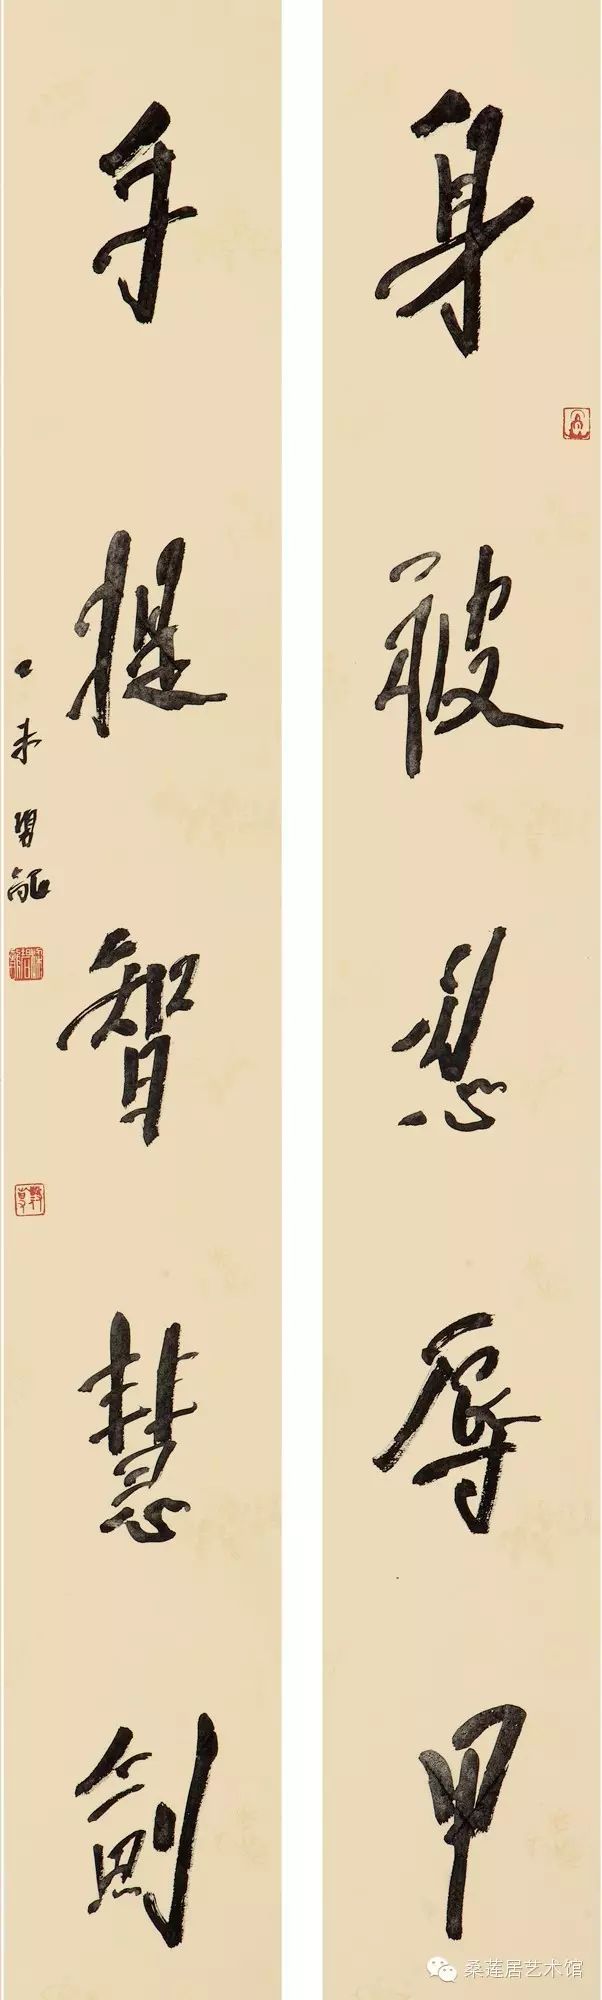 身被忍辱甲
手提智慧劍
乙未
桑莲居艺术馆